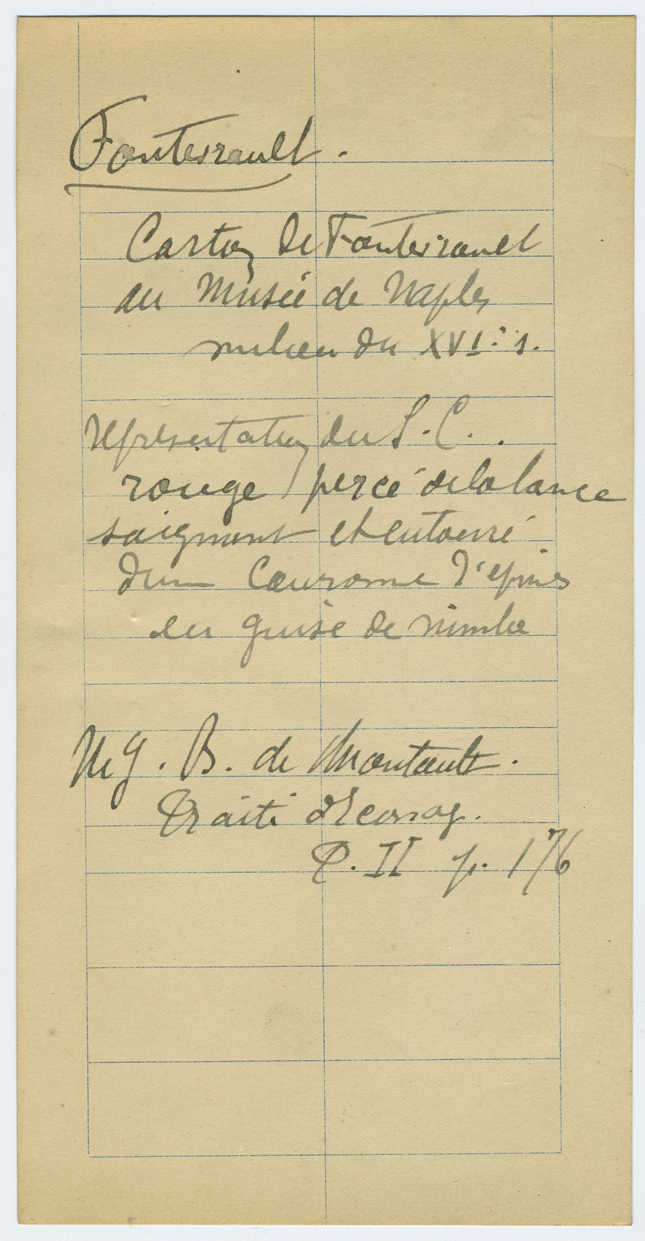 Fontevrault.
Carton de Fontevrault
au Musée de Naples
milieu du XVI.e s.
représentation du S. C. .
rouge, percé de la lance
saignant et entouré
d'une Couronne d'épines
en guise de nimbe
Mg. B. de Montault.
Traité d'Iconog.
T. II p. 176